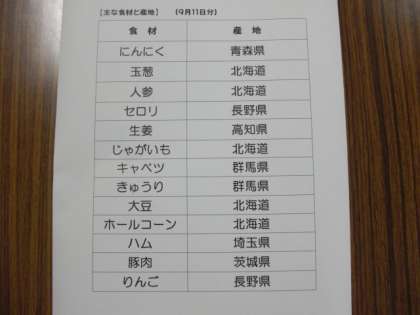 【主な食材と産地】 (9月11日分)
食 材 産 地
にんにく 青森県
玉葱 北海道
人参 北海道
セロリ 長野県
生姜 高知県
じゃがいも 北海道
キャベツ 群馬県
きゅうり 群馬県
大豆 北海道
ホールコーン 北海道
ハム 埼玉県
豚肉 茨城県
りんご 長野県